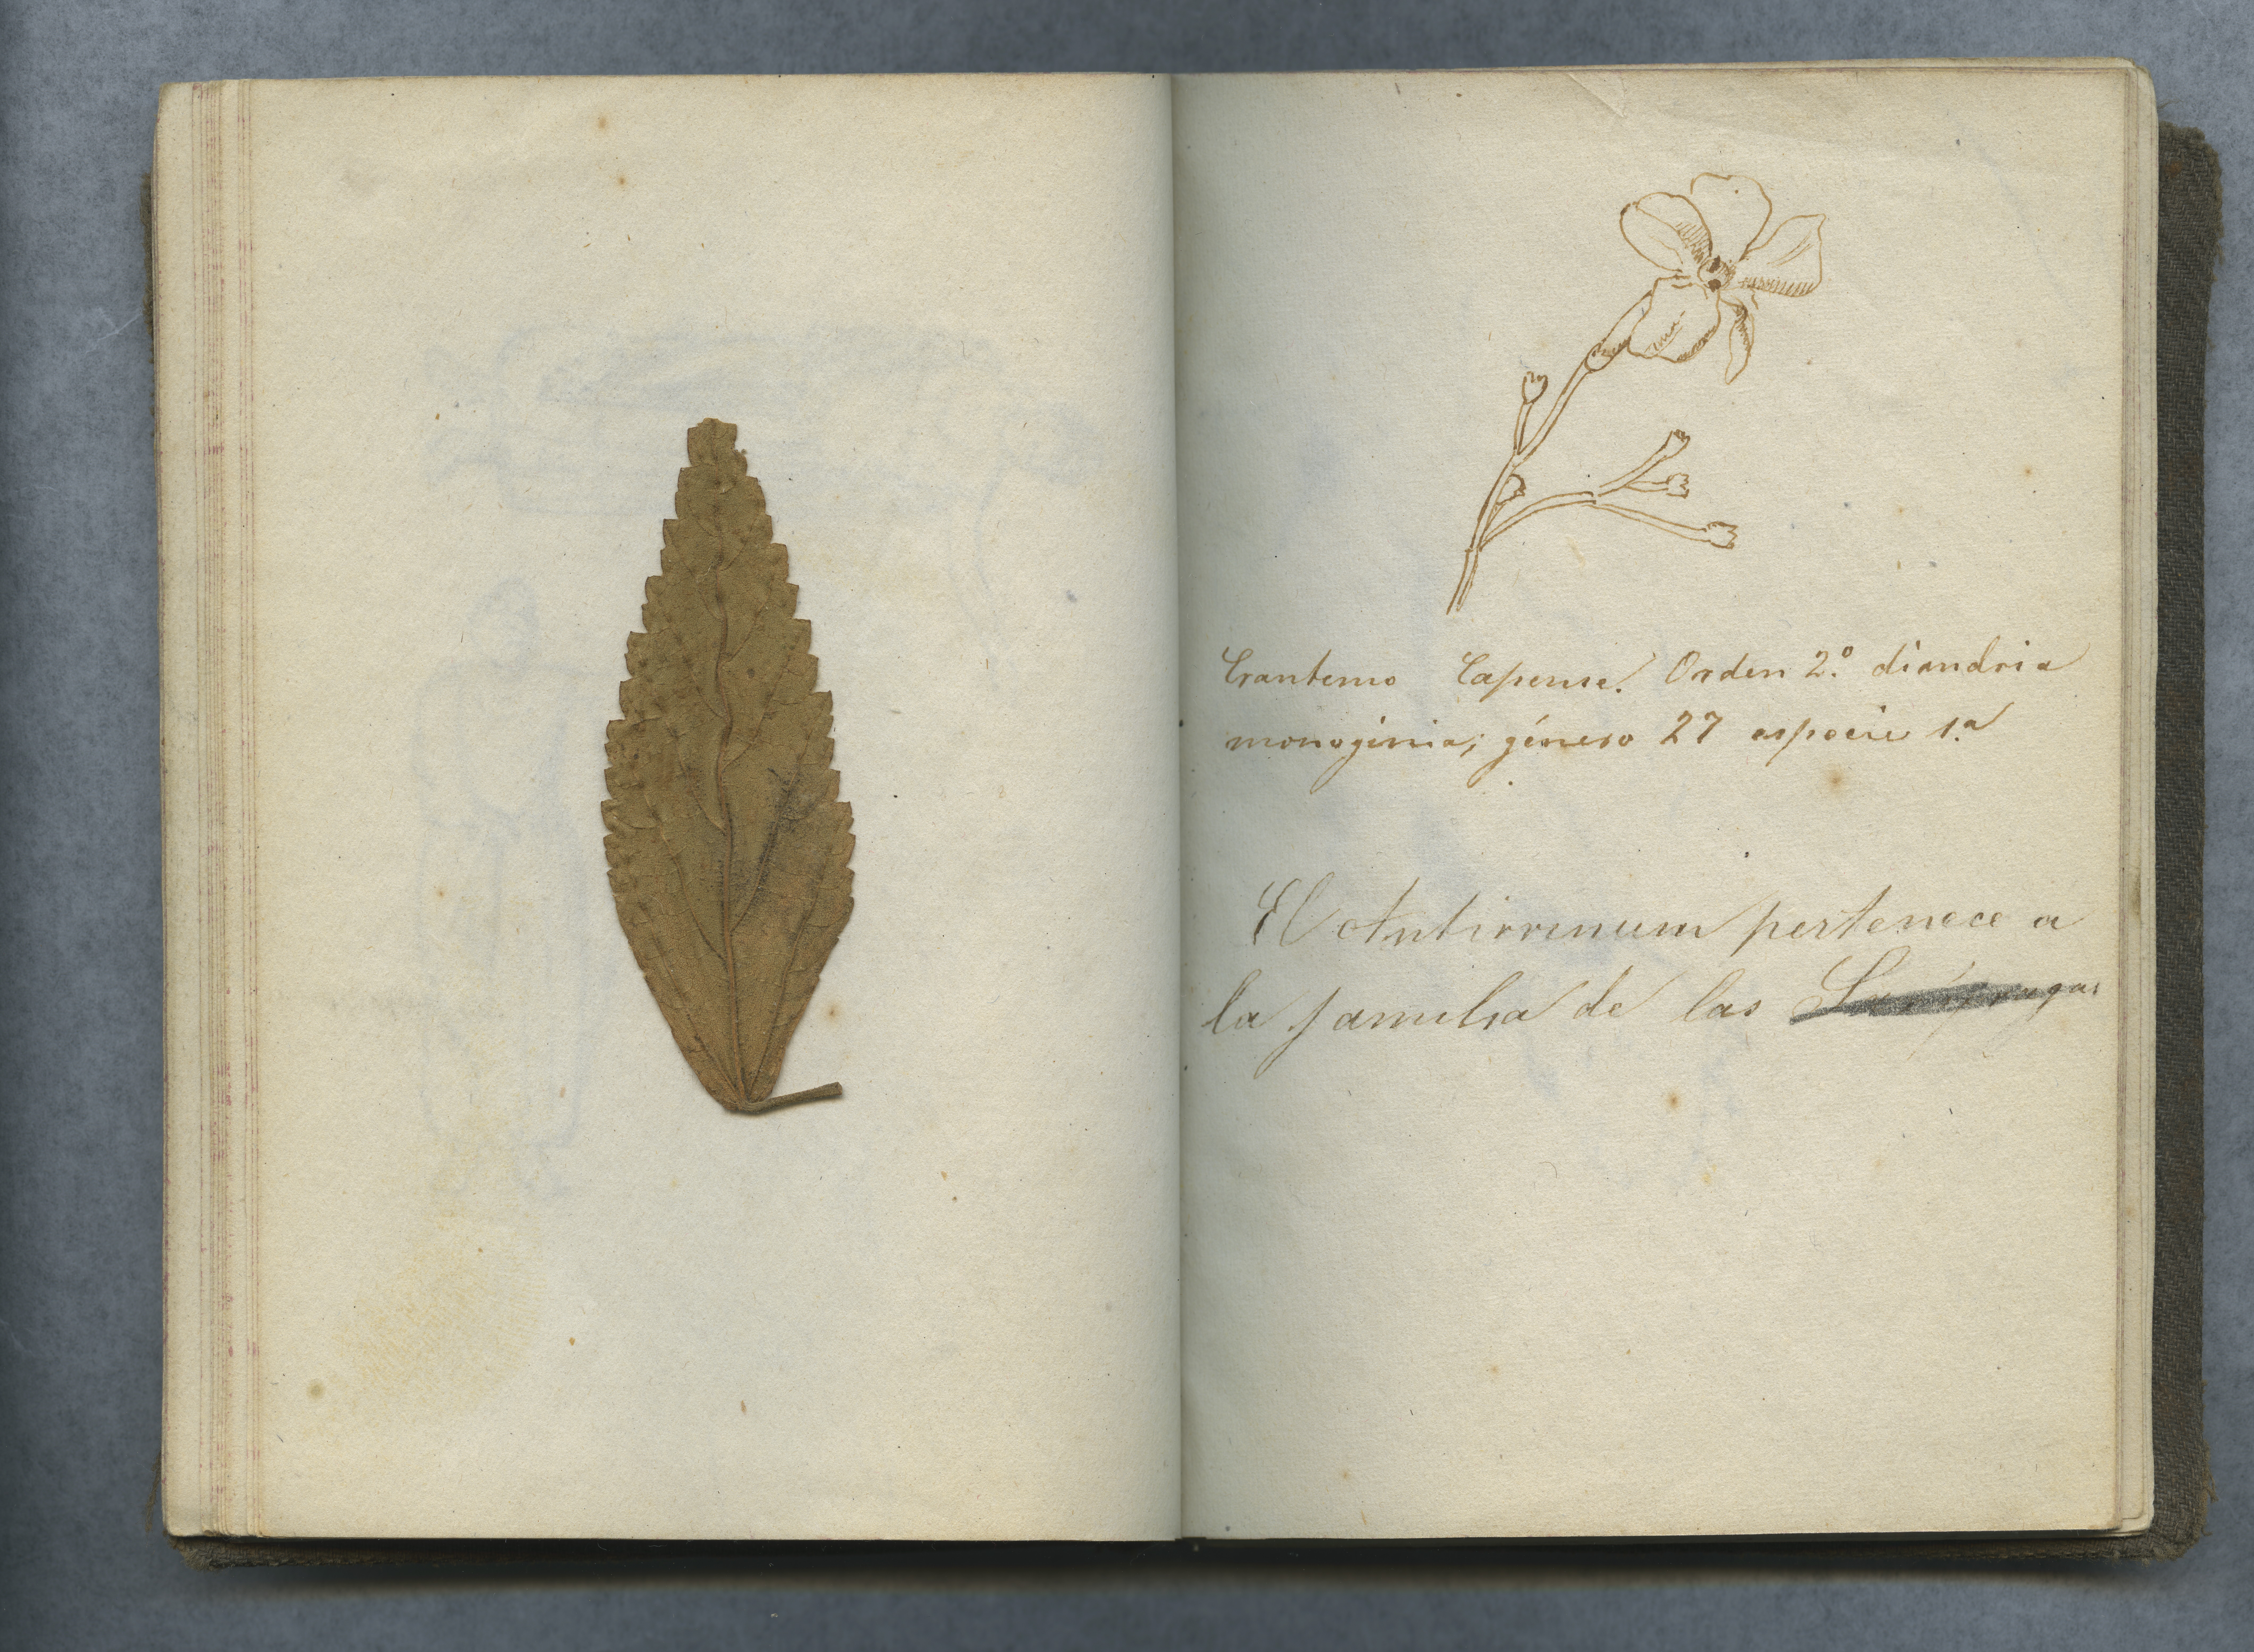 Erantemo Capense. Orden 2.º diandria
monoginia; género 27 especie 1.ª
El Antirrinum pertenece a
la familia de las